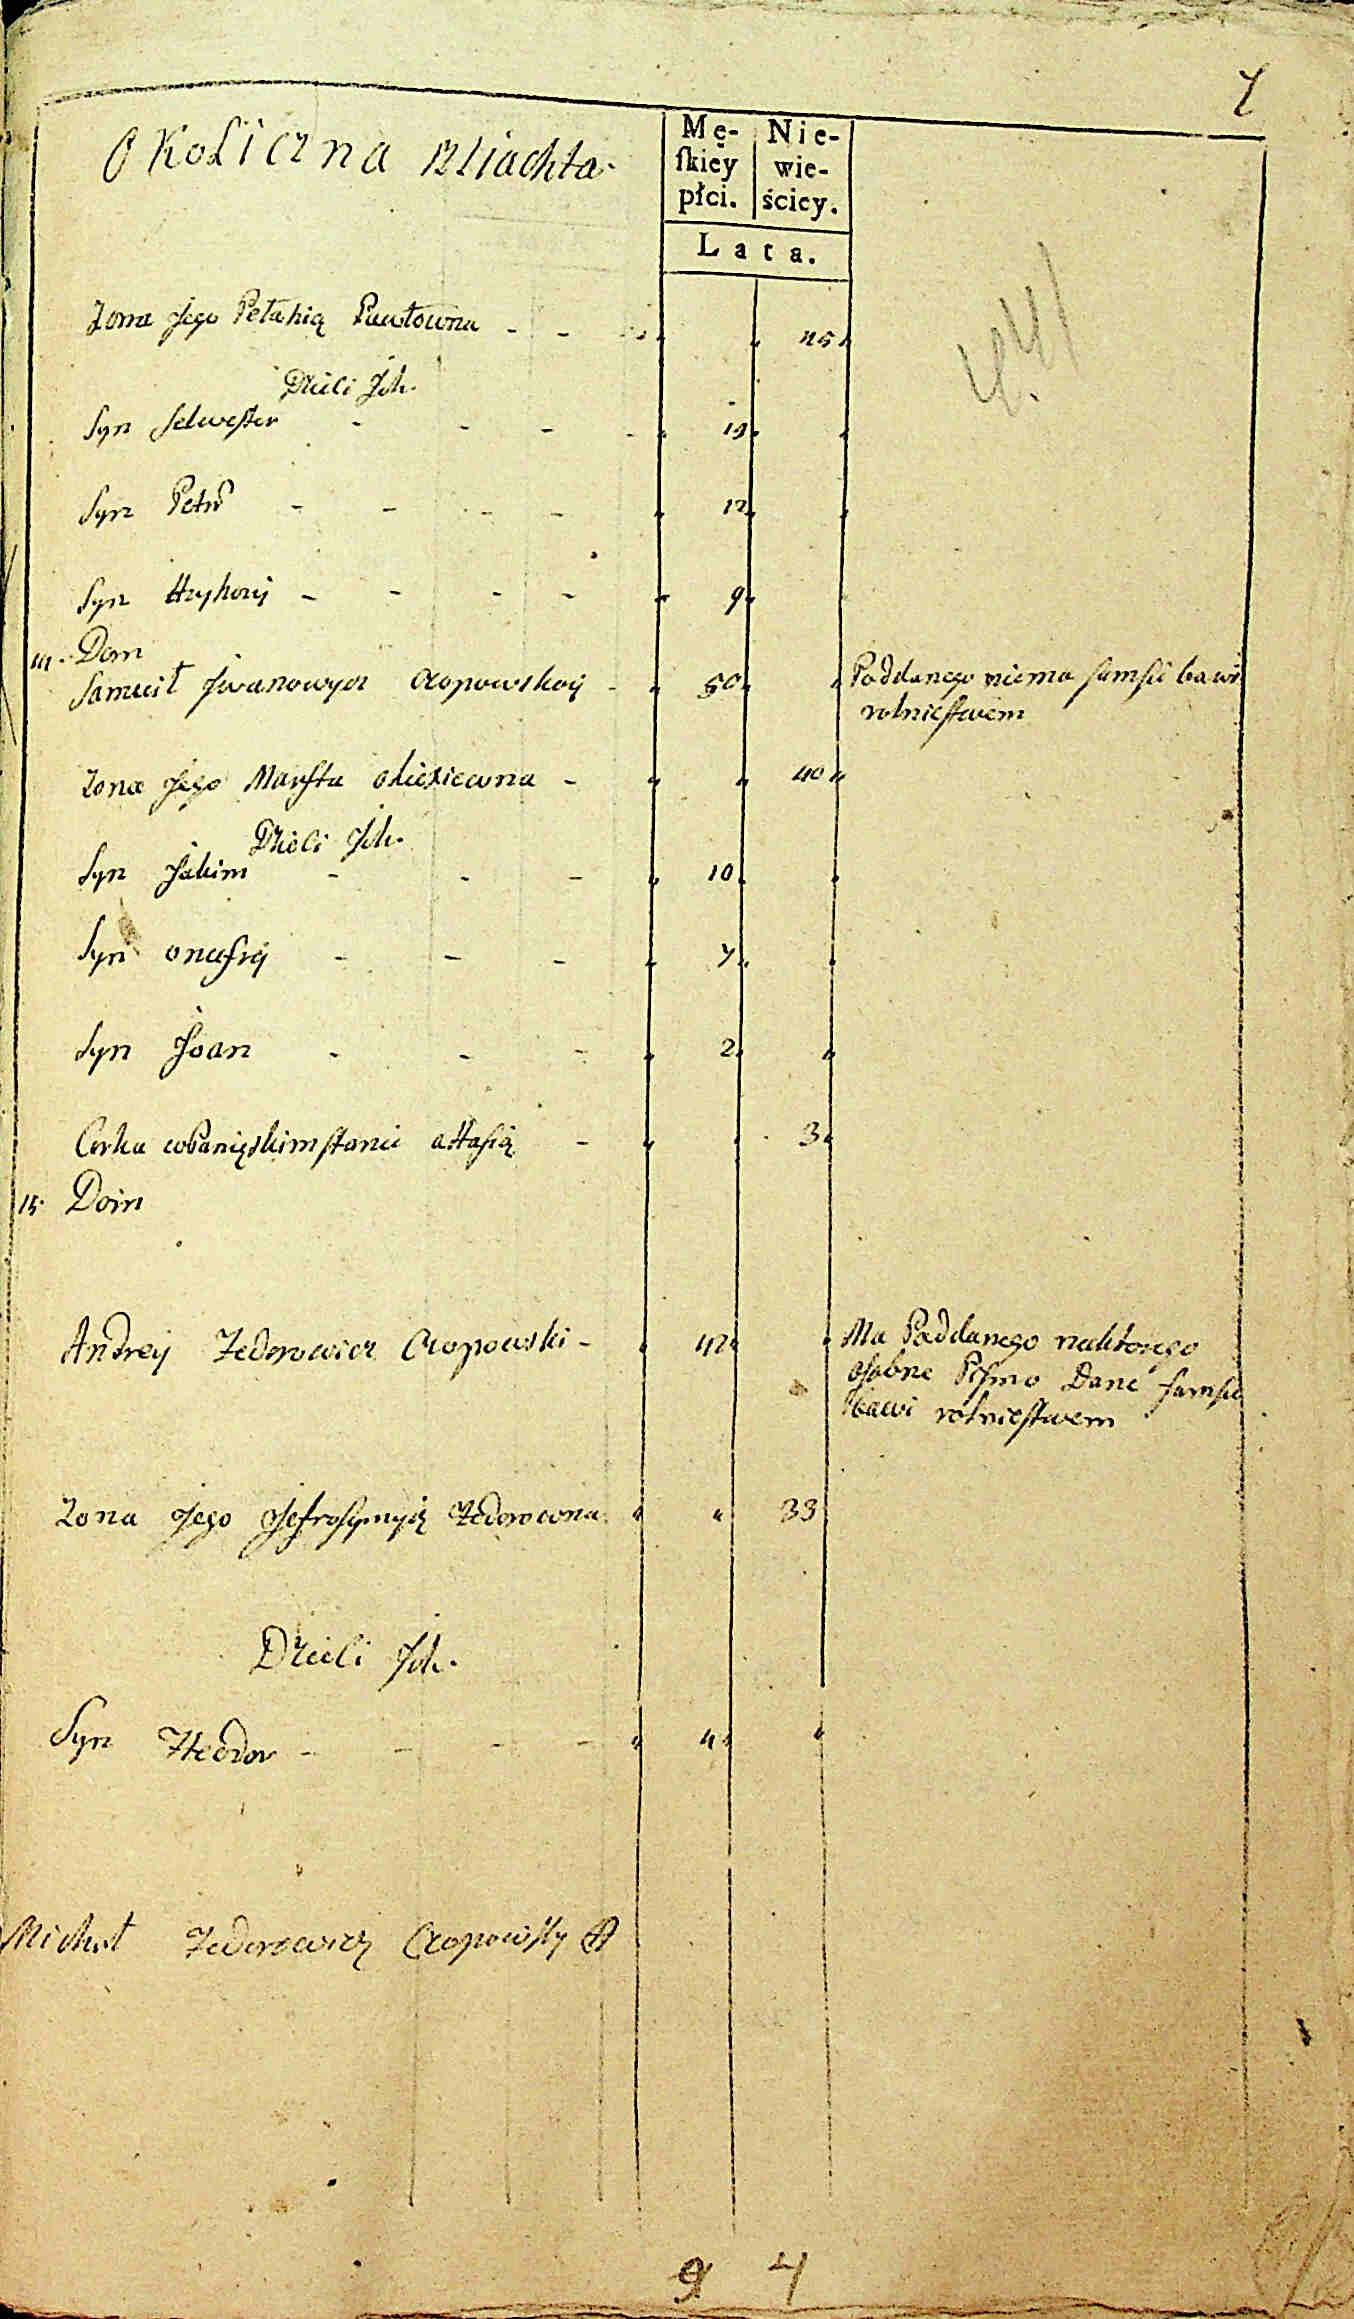 7
Okoliczna szliachta
Mę- Nie-
skiey wie-
płci. ścicy.
Lata.
Zona Jego Pełahią Pawłowna - - 45
Dzieci Ich.
Syn Selwester - - - - 14
Syn Petro - - - - 12
Syn Hryhory - - - - 9
14. Dom
Samuił Iwanowycz Czopowskoy - 50 Poddanego niema samsie bawi
rolnicstwem
Zona Jego Marfta Olexiewna - 40
Dzieci Ich.
Syn Jakim - - - 10
Syn Onufry - - - 7
Syn Joan - - - 2
Corka w Panięskim stanie attafią - 3
15. Dom
Andrey Fedorowicz Czopowski - 42 Ma Poddanego naktorego
osobne Pismo Dane samsie
bawi rolnicstwem
Zona Jego Jefrosymyią Fedorowna 33
Dzieci Ich.
Syn Fteodor - - - - 4
Michał Fedorowicz Czopowsky
9 4